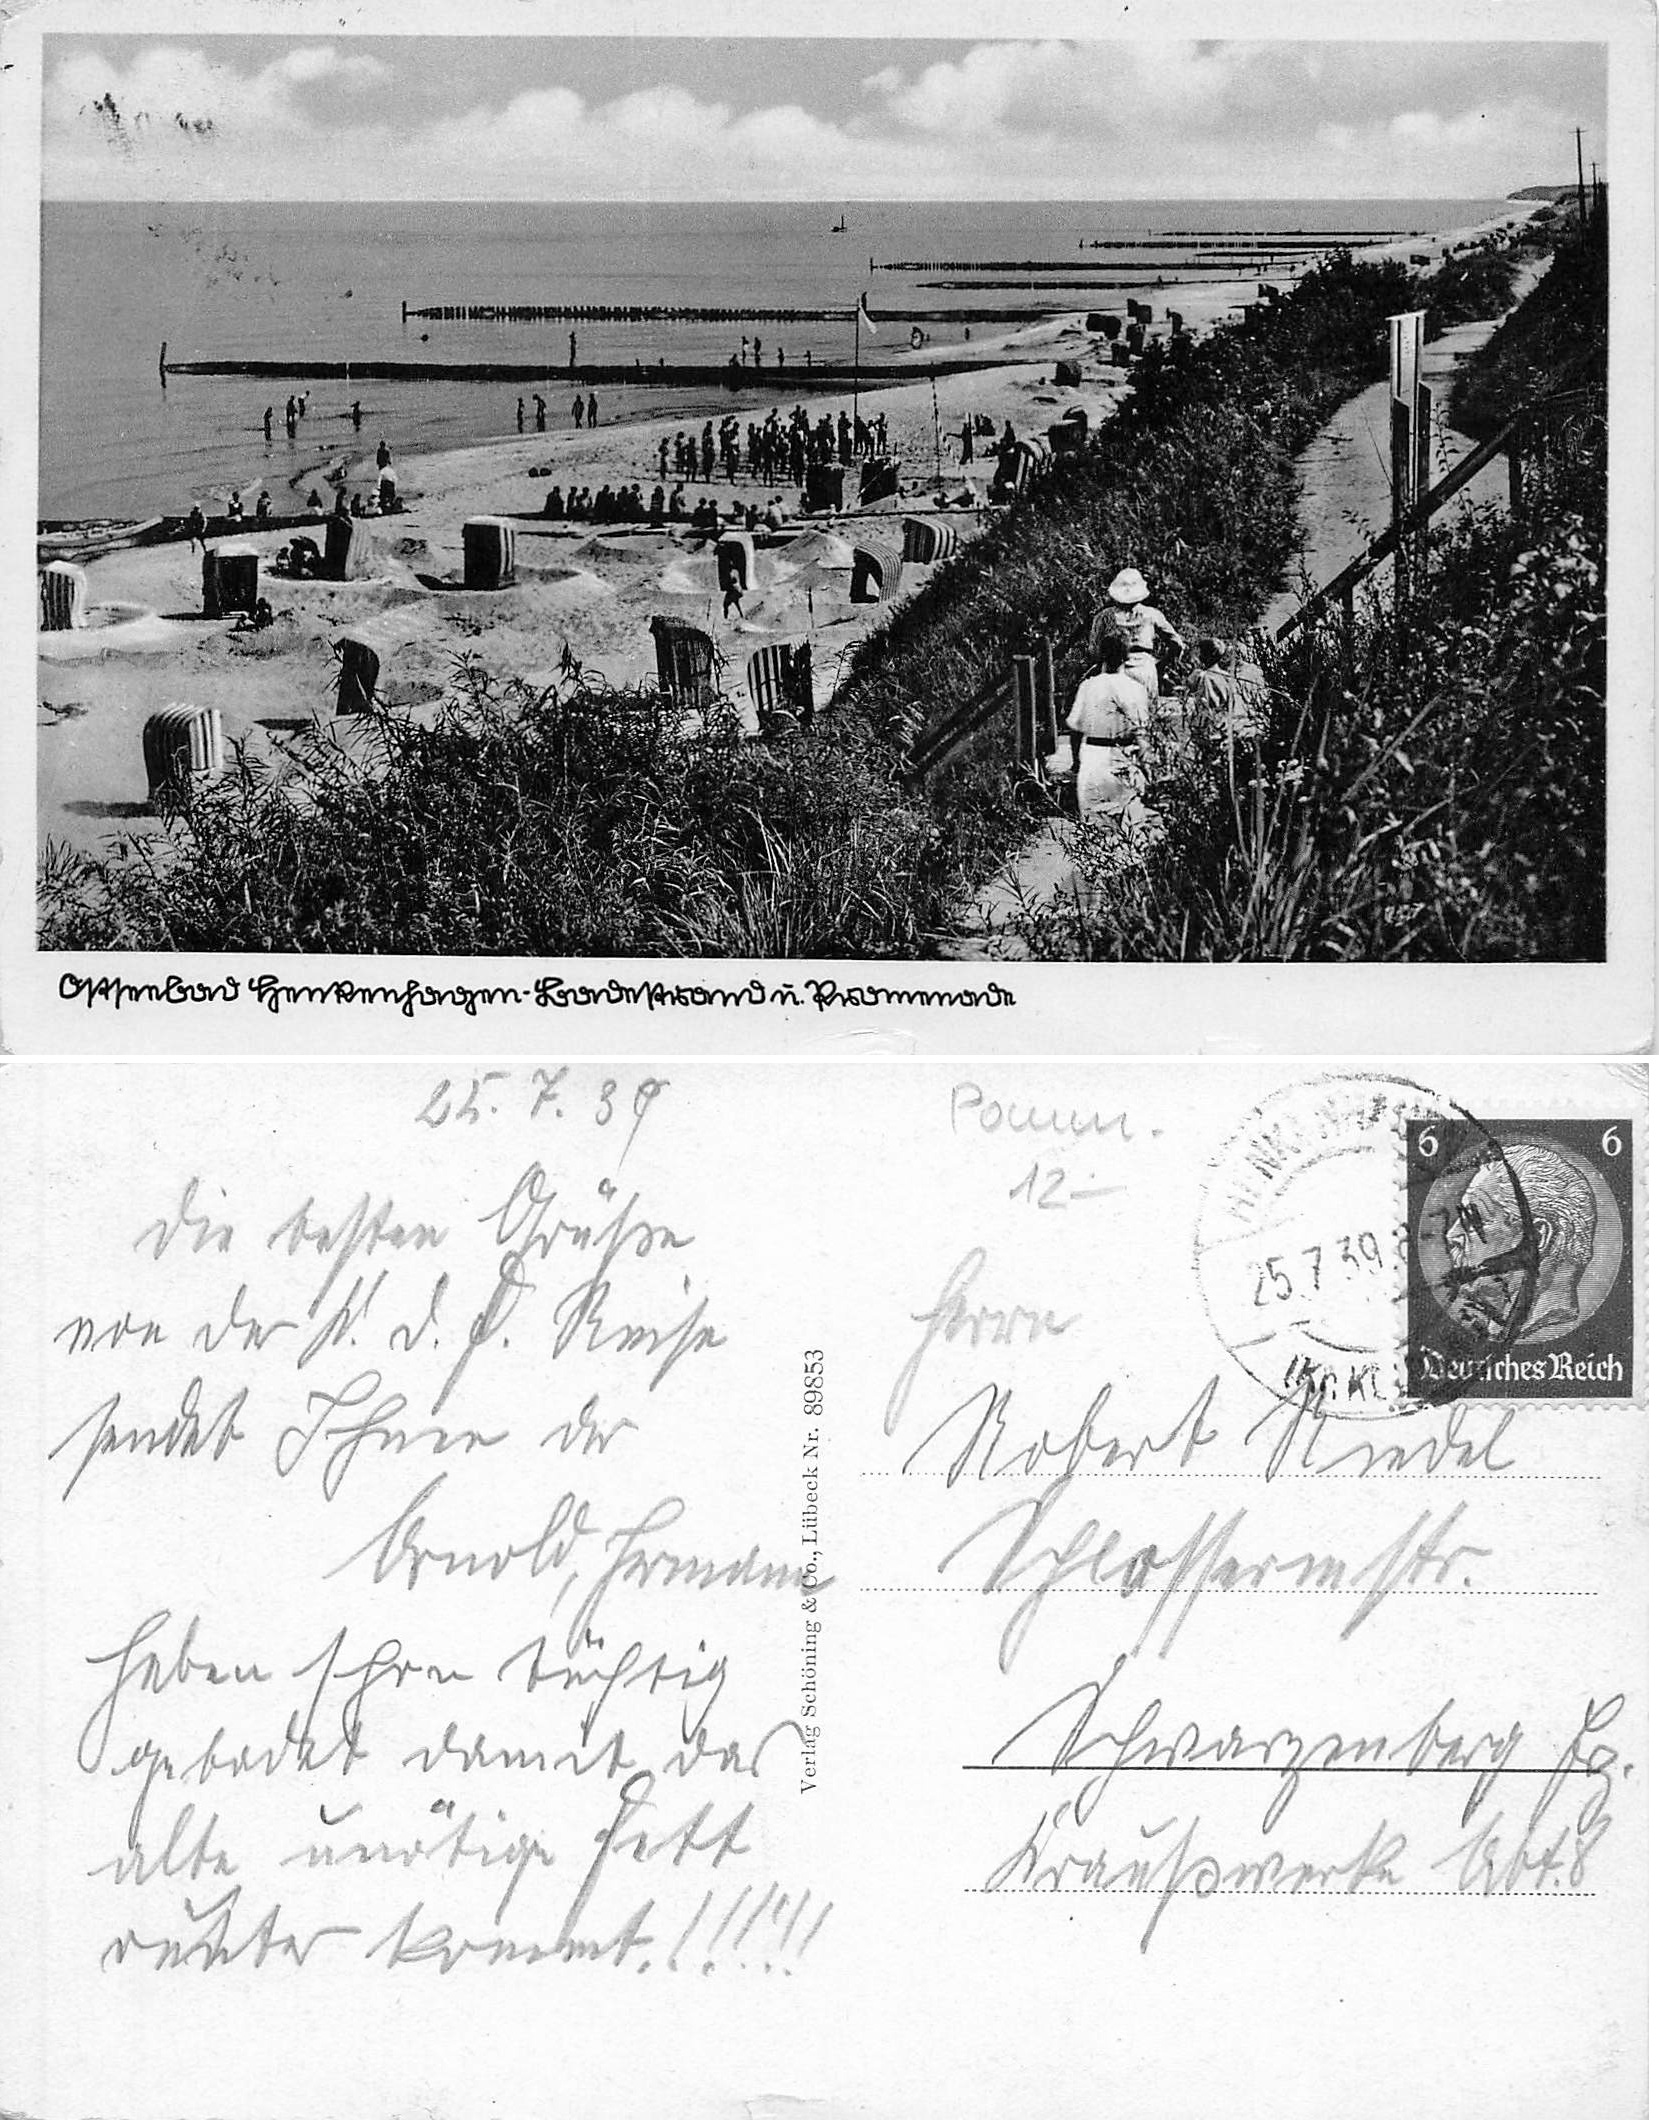 Ostseebad Henkenhagen - Badestrand u. Promenade
25.7.39
Die besten Grüße
von der K. d. F. Reise
sendet Ihnen der
Arnold, Hermann
Haben schon tüchtig
gebadet damit das
alte unötige Fett
runter kommt.!!!!!!
Verlag Schöning & Co., Lübeck Nr. 89853
Pomm.
12-
25.7.39
6 6
Deutsches Reich
Herrn
Robert Riedel
Schlossermstr.
Schwarzenberg Erzg.
Kraußwerke Abt. 8